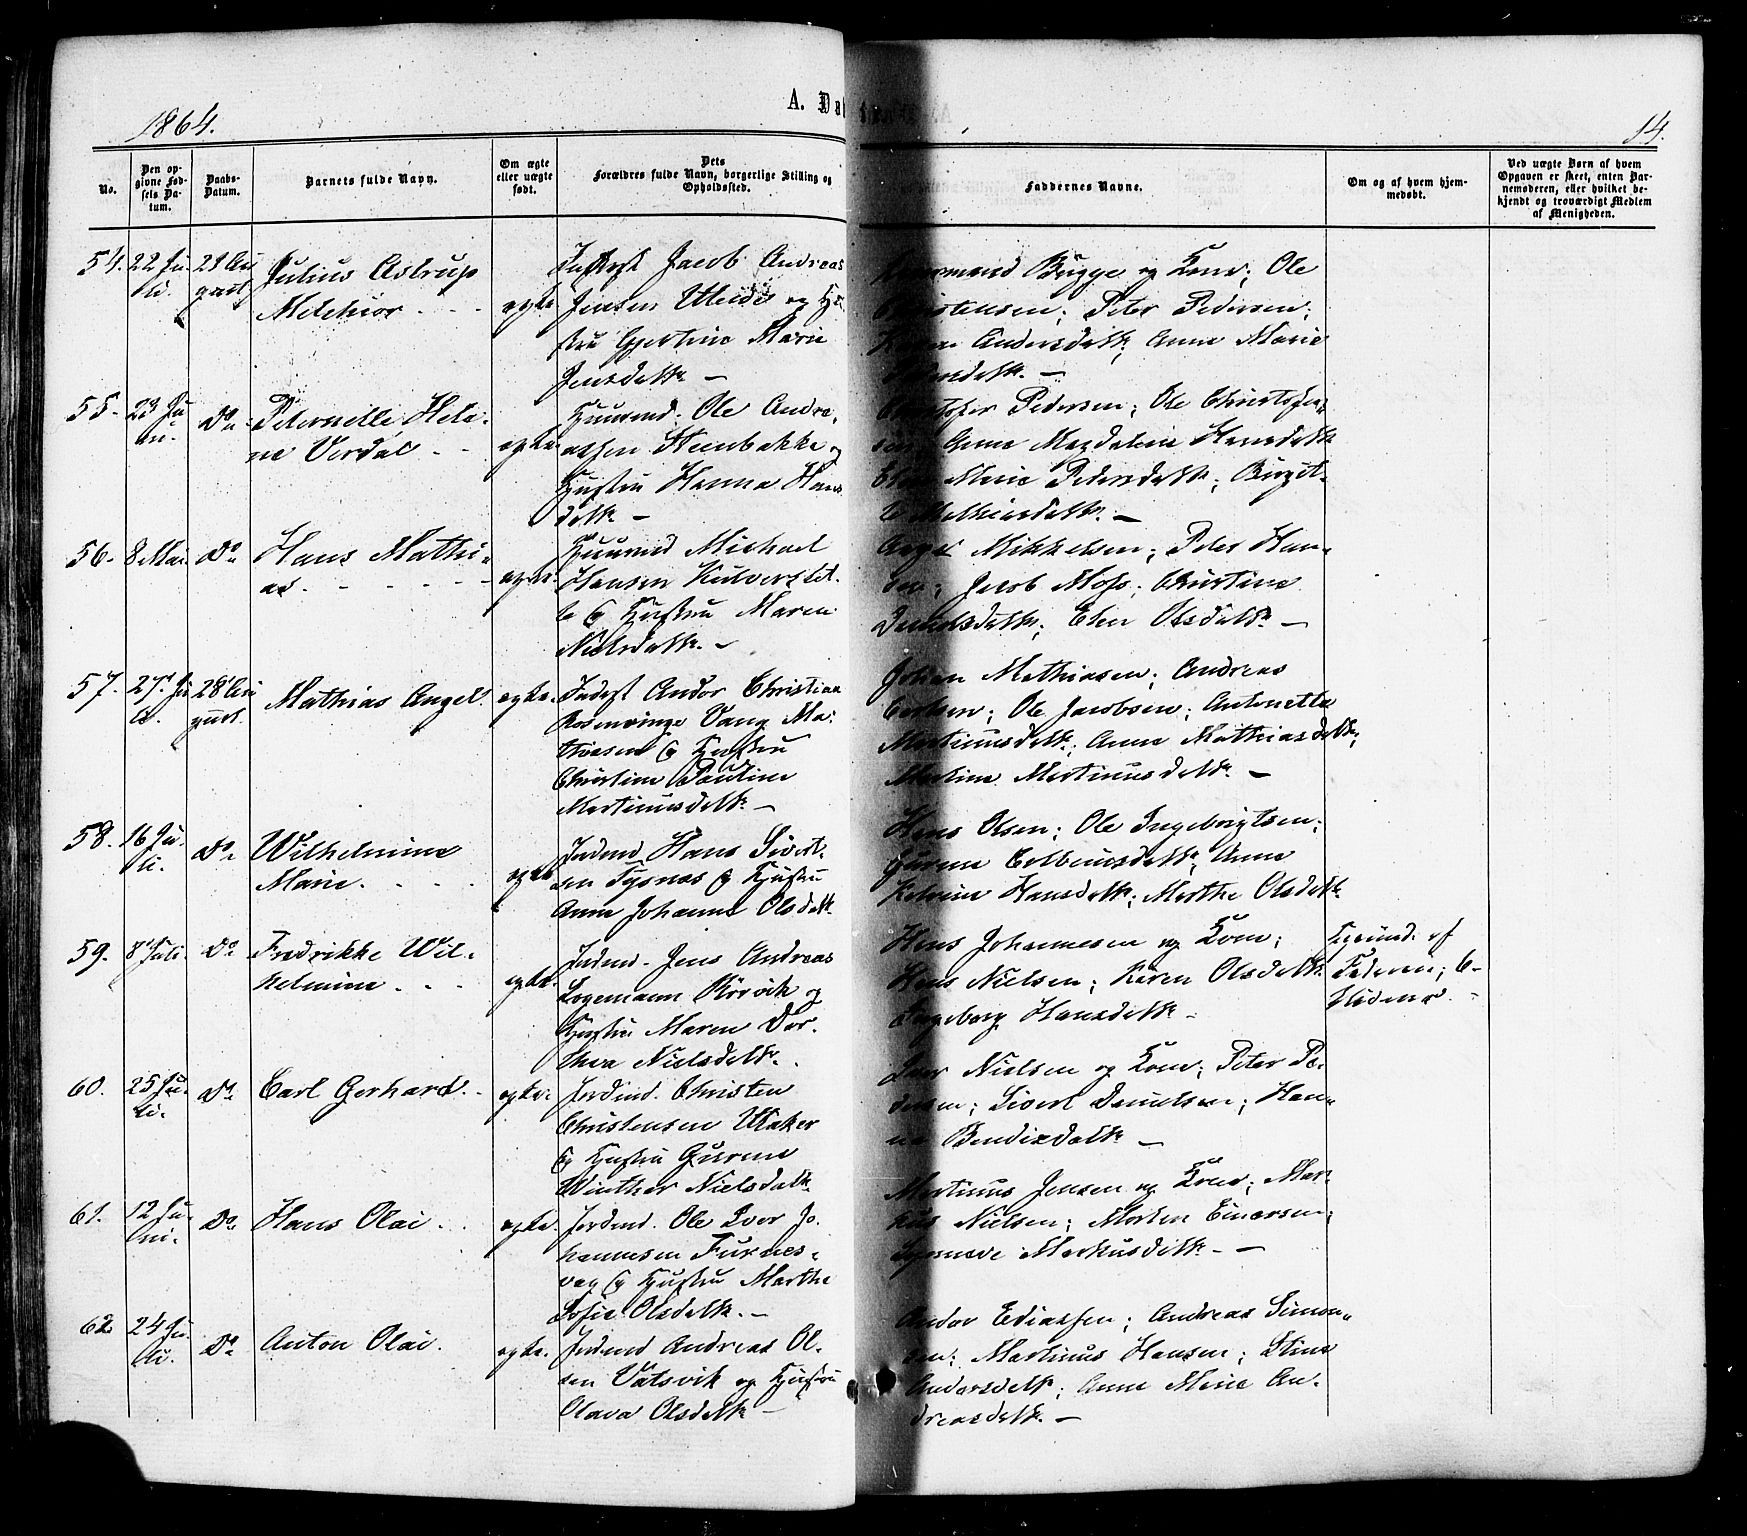 1864.
A. Dø
14.
No.
Den op-
givne Fød-
sels Da-
tum.
Daabs-
Datum.
Barnets fulde Navn.
Om ægte
eller uægte
født.
Dets
Forældres fulde Navn, borgerlige Stilling og
Opholdssted.
Faddernes Navne.
Om og af hvem hjem-
medøbt.
Ved uægte Børn af hvem
Opgaven er skeet, enten Bar-
nemoderen, eller hvilket be-
kjendt og troværdigt Medlem
af Menigheden.
54. 22 Ju-
li.
21 Au
gust
Julius Astrup
Melchior - -
ægte
Jacob Andreas
Jensen og Hu-
stru Gjertine Marie
Jensdatt. —
Bugge og Kone; Ole
Christensen; Peter Pedersen;
Andersdatt; Anne Marie
55. 23 Ju
ni.
Do.
Peternelle Hele-
ne Verdal - -
ægte
Huusmd. Ole Andre-
assen Steenbakke og
Hustru Hanna Hans
datt. —
Pedersen; Ole Christofer-
sen Anne Magdalena Hansdatt
Marie Pedersdatt; Birgit-
te Mathiasdatt. —
56. 8 Mai
Do.
Hans Mathi-
as. - - - - -
ægte.
Huusmd Michael
Hansen Kulverslet-
te og Hustru Maren
Nielsdatt. —
Mikkelsen; Peter Han-
sen; Jacob Moss; Christina
Danielsdatt; Elen Olsdatt. —
57. 27. Ju
li.
28 Au
gust.
Mathias Angel.
ægte.
Inderst Andor Christian
Rosenvinge Vang Ma-
thiasen og Hustru
Christine Pauline
Martinusdatt. —
Johan Mathiasen; Andreas
Ole Jacobsen; Antonette
Martinusdatt; Anne Mathiasdatt;
Martine Martinusdatt. —
58. 16 Ju-
li.
Do.
Wilhelmine
Marie. - - -
ægte
Indend Hans Sivert-
sen Tysnes og Hustru
Anne Johanne Olsdatt.
Hans Olsen; Ole Ingebrigtsen;
Gurine Anne
Hansdatt; Marthe Olsdatt.
59. 8 Juli.
Do
Fredrikke Wil-
helmine - - -
ægte.
Indend. Jens Andreas
Logemann Rørvik og
Hustru Maren Dor-
thea Nielsdatt. -
Hans Johannesen og Kone;
Hans Nielsen; Karen Olsdatt
Ingeborg Hansdatt. -
af
Faderen;
60. 25 Ju-
li.
Do.
Carl Gerhard. -
ægte.
Jordend. Christen
Christensen Utaker
og Hustru Gurine
Winther Nielsdatt.
Iver Nielsen og Kone; Peter Pe-
dersen; Sivert Danielsen; Han-
na Bendixdatt. —
61. 12 Ju-
ni.
Do.
Hans Olai. - -
ægte.
Jordend. Ole Iver Jo-
hannesen Furnes-
vag og Hustru Marthe
Sofie Olsdatt. —
Martinus Jensen og Kone; Mar-
kus Nielsen; Morten Einersen;
Markusdatt. —
62. 24 Ju
li.
Do.
Anton Olai.
ægte.
Jordend Andreas Ol-
sen Vatsvik og Hustru
Olava Olsdatt —
Andor Ediassen; Andreas Simon-
sen; Martinus Hansen; Stine
Andersdatt; Anne Marie An-
dreasdatt. —